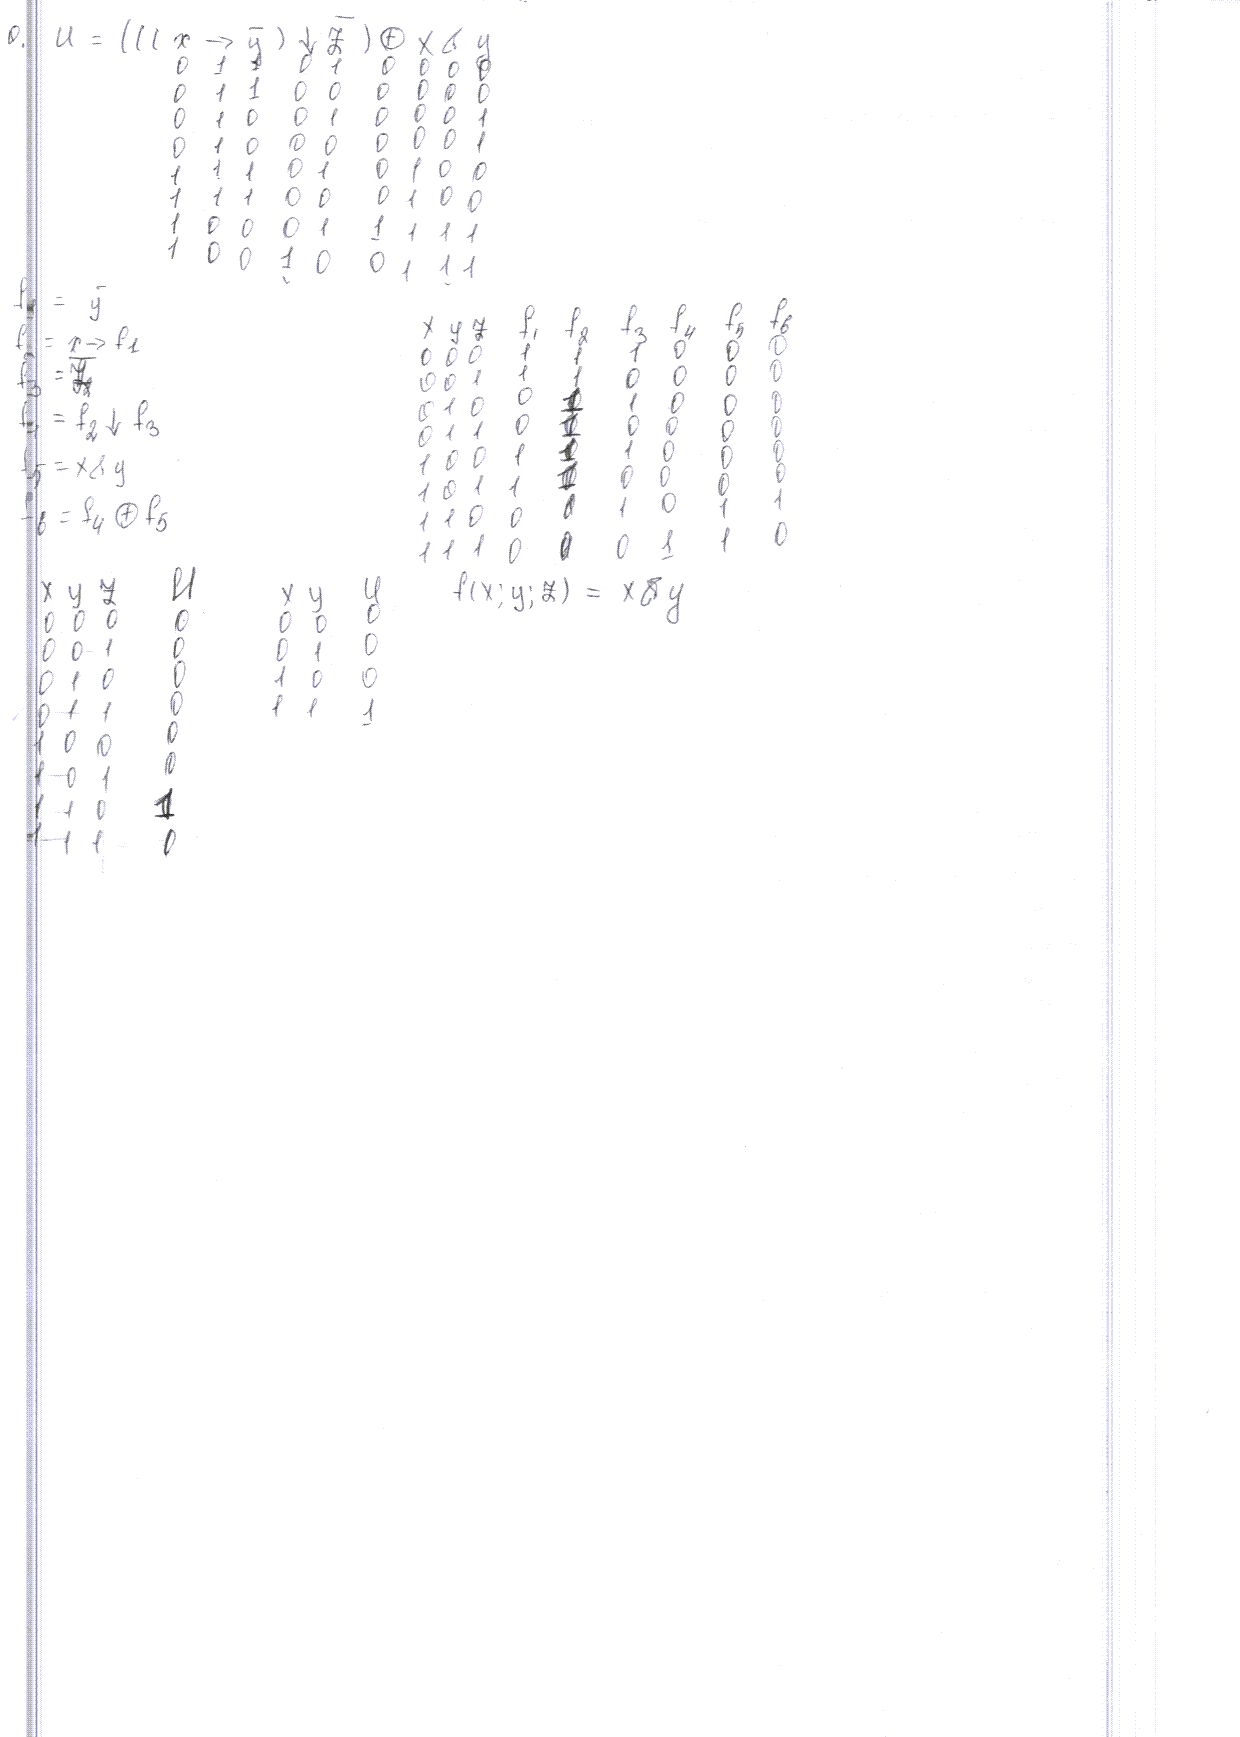 0. U = (((x → ȳ) ↓ z̄) ⊕ x & y
0 1 1 0 1 0 0 0 0
0 1 1 0 0 0 0 0 0
0 1 0 0 1 0 0 0 1
0 1 0 0 0 0 0 0 1
1 1 1 0 1 0 1 0 0
1 1 1 0 0 0 1 0 0
1 0 0 0 1 1 1 1 1
1 0 0 1 0 0 1 1 1
f1 = ȳ
f = x → f1
f3 =
= f2 ↓ f3
f5 = x & y
6 = f4 ⊕ f5
x y z f1 f2 f3 f4 f5 f6
0 0 0 1 1 1 0 0 0
0 0 1 1 1 0 0 0 0
0 1 0 0 1 1 0 0 0
0 1 1 0 1 0 0 0 0
1 0 0 1 1 1 0 0 0
1 0 1 1 1 0 0 0 0
1 1 0 0 0 1 0 1 1
1 1 1 0 0 0 1 1 0
x y z U
0 0 0 0
0 0 1 0
0 1 0 0
0 1 1 0
1 0 0 0
1 0 1 0
1 1 0 1
1 1 1 0
x y U
0 0 0
0 1 0
1 0 0
1 1 1
f(x; y; z) = x & y